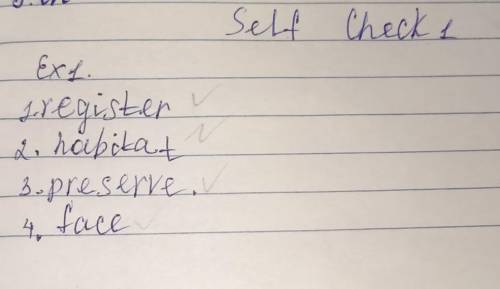 Self Check 1
Ex1.
1.register
2. habitat
3.preserve.
4. face